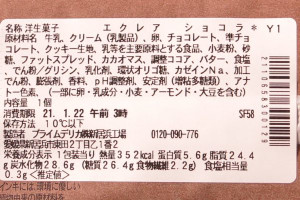 名称 洋生菓子 エクレア ショコラ* Y1
原材料名 牛乳、クリーム（乳製品）、卵、チョコレート、準チョ
コレート、クッキー生地、乳等を主要原料とする食品、小麦粉、砂
糖、ファットスプレッド、カカオマス、調整ココア、バター、食塩
、でん粉/グリシン、乳化剤、環状オリゴ糖、カゼインNa、加工
でん粉、膨張剤、香料、pH調整剤、安定剤（増粘多糖類）、アナ
トー色素、（一部に卵・乳成分・小麦・アーモンド・大豆を含む）
内容量 1個
消費期限 21. 1.22 午前 3時 SF58
保存方法 10℃以下
製造者 プライムデリカ 新居浜工場 0120-090-776
愛媛県新居浜市 2丁目2番1
栄養成分表示 1包装当り 熱量352kcal 蛋白質5.6g 脂質24.4
g 炭水化物28.6g （糖質26.4g 食物繊維2.2g） 食塩相当量
0.3g <推定値>
インキ中には、環境に優しい